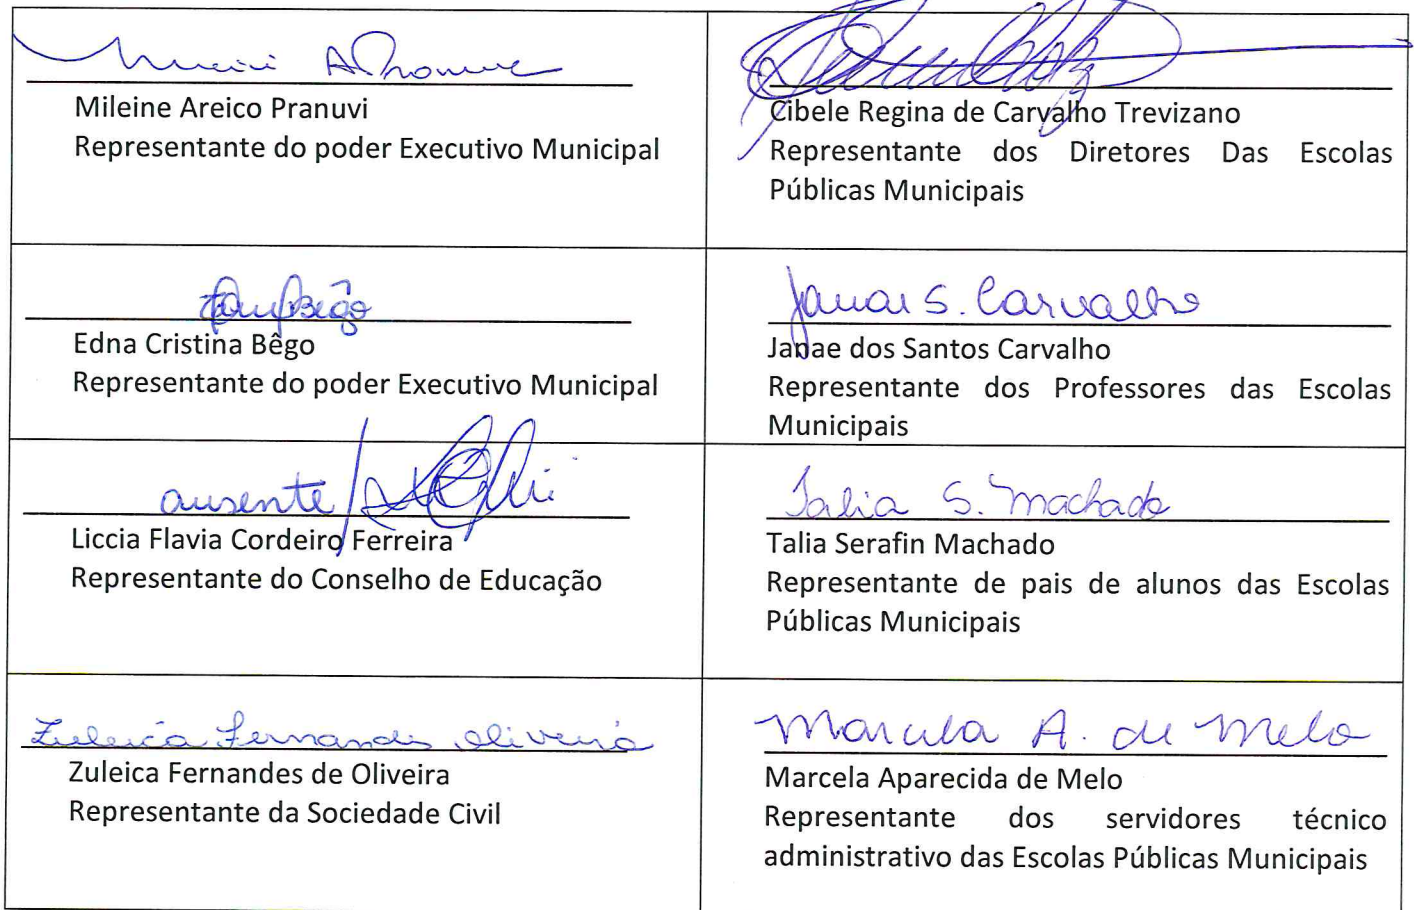 Mileine Areico Pranuvi
Representante do poder Executivo Municipal
Cibele Regina de Carvalho Trevizano
Representante dos Diretores Das Escolas
Públicas Municipais
Bêgo
Edna Cristina Bêgo
Representante do poder Executivo Municipal
Janai S. Carvalho
Janae dos Santos Carvalho
Representante dos Professores das Escolas
Municipais
ausente
Liccia Flavia Cordeiro Ferreira
Representante do Conselho de Educação
Talia S. Machado
Talia Serafin Machado
Representante de pais de alunos das Escolas
Públicas Municipais
Zuleica Fernandes Oliveira
Zuleica Fernandes de Oliveira
Representante da Sociedade Civil
Marcela A. de Melo
Marcela Aparecida de Melo
Representante dos servidores técnico
administrativo das Escolas Públicas Municipais